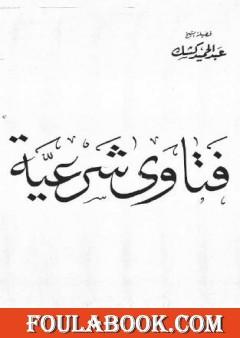 فضيلة الشيخ
عبد الحميد كشك
فتاوى شرعية
FOULABOOK.COM